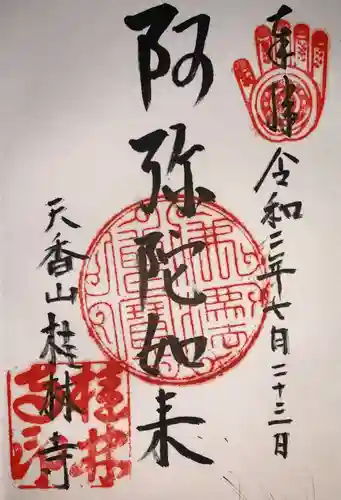 奉拝
令和三年七月二十三日
阿弥陀如来
天香山桂林寺
桂林寺印